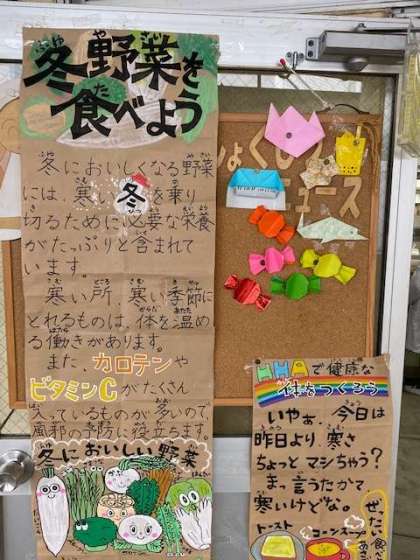 冬野菜を
食べよう
冬においしくなる野菜
には、寒い冬を乗り
切るために必要な栄養
がたっぷりと含まれて
います。
寒い所、寒い季節に
とれるものは、体を温め
る働きがあります。
また、カロテンや
ビタミンCがたくさん
入っているものが多いので、
風邪の予防に役立ちます。
冬においしい野菜
ュース
で健康な
体をつくろう
いやぁ、今日は
昨日より、寒さ
ちょっとマシちゃう?
まっ言うたかて
寒いけどな。
トースト
コーンスープ
ぜったい食べ